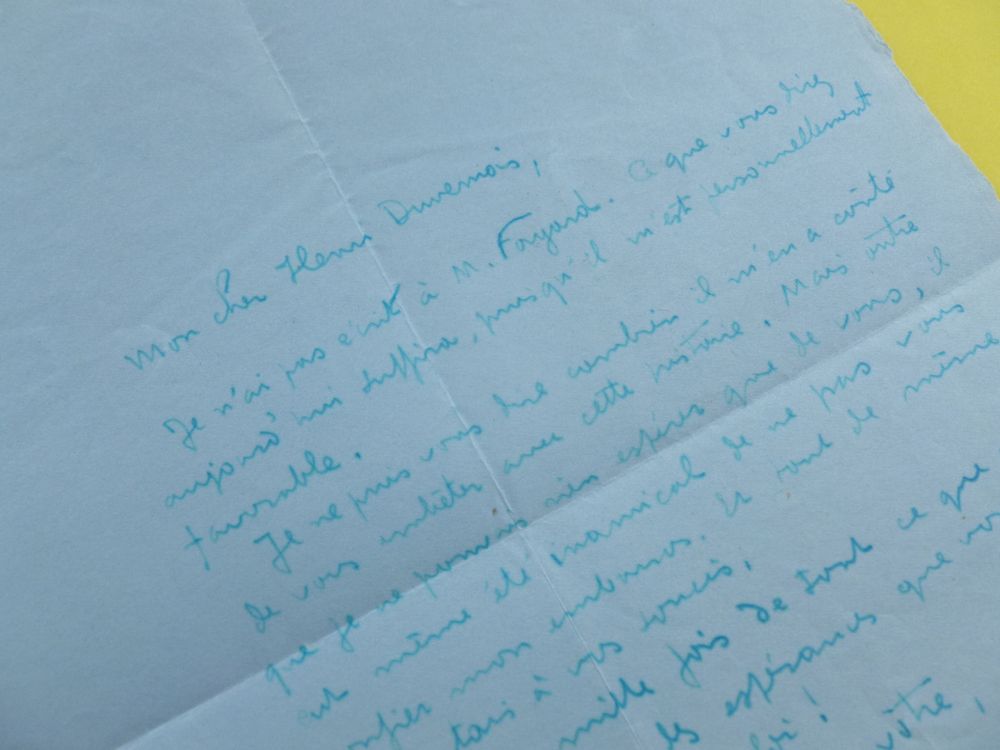 Mon cher Henri Duvernois,
Je n'ai pas écrit à M. Fayard. Ce que vous direz
aujourd'hui suffira, puisqu'il m'est personnellement
favorable.
Je ne puis vous dire combien il m'en a coûté
de vous embêter avec cette histoire. Mais outre
que je ne pouvais rien espérer que de vous, il
eut même été inamical de ne pas vous
mon embarras. Et tout de même
à vos soucis.
mille fois de tout ce que
espérances que
!
vôtre,